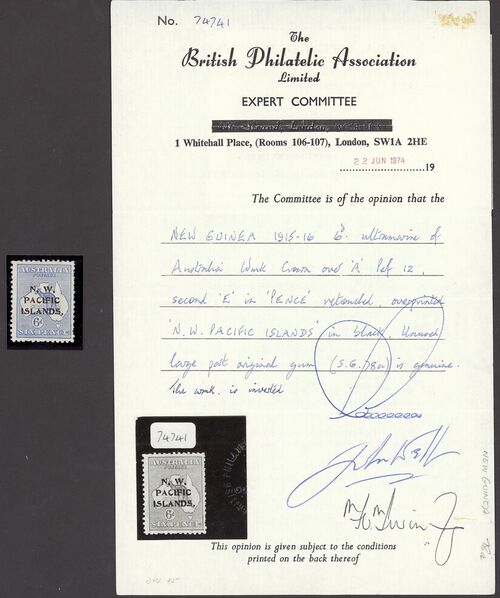 No. 74741
The
British Philatelic Association
Limited
EXPERT COMMITTEE
1 Whitehall Place, (Rooms 106-107), London, SW1A 2HE
22 JUN 1974 19
The Committee is of the opinion that the
NEW GUINEA 1915-16 6d. ultramarine of
Australia Wmk Crown over 'A' Perf 12,
second 'E' in 'PENCE' retouched overprinted
'N.W. PACIFIC ISLANDS' in black, Unused
large part original gum (S.G. 78a) is genuine.
The wmk. is inverted
AUSTRALIA
POSTAGE
N. W.
PACIFIC
ISLANDS.
6D
SIX PENCE
74741
AUSTRALIA
POSTAGE
N. W.
PACIFIC
ISLANDS.
6D
SIX PENCE
This opinion is given subject to the conditions
printed on the back thereof
NEW GUINEA